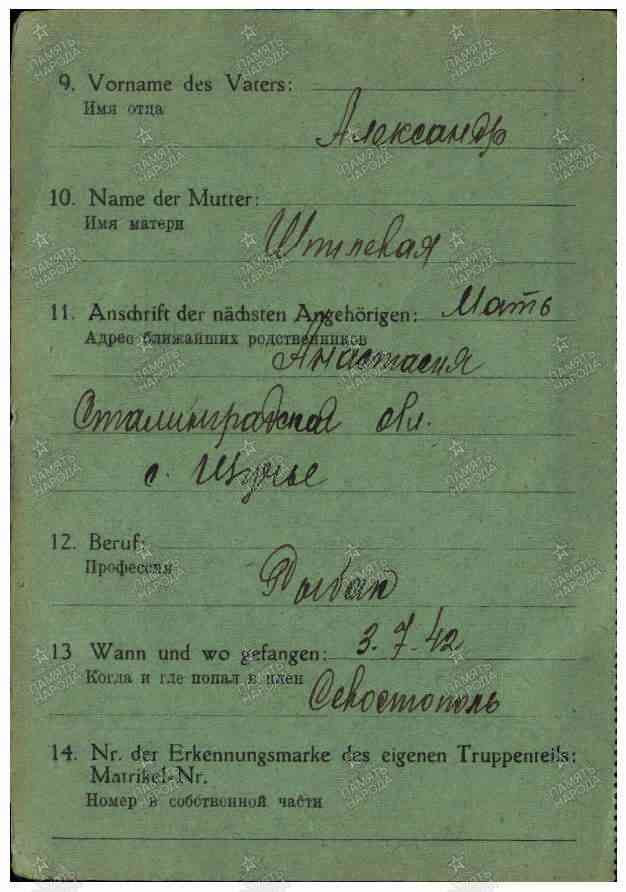 9. Vorname des Vaters:
Имя отца
Александр
10. Name der Mutter:
Имя матери
Штилевая
11. Anschrift der nächsten Angehörigen: Мать
Адрес ближайших родственников
Анастасия
Сталинградской обл.
с. Щучье
12. Beruf:
Профессия
Рыбак
13 Wann und wo gefangen: 3.7.42
Когда и где попал в плен
Севостополь
14. Nr. der Erkennungsmarke des eigenen Truppenteils:
Matrikel-Nr.
Номер в собственной части
ПАМЯТЬ
НАРОДА